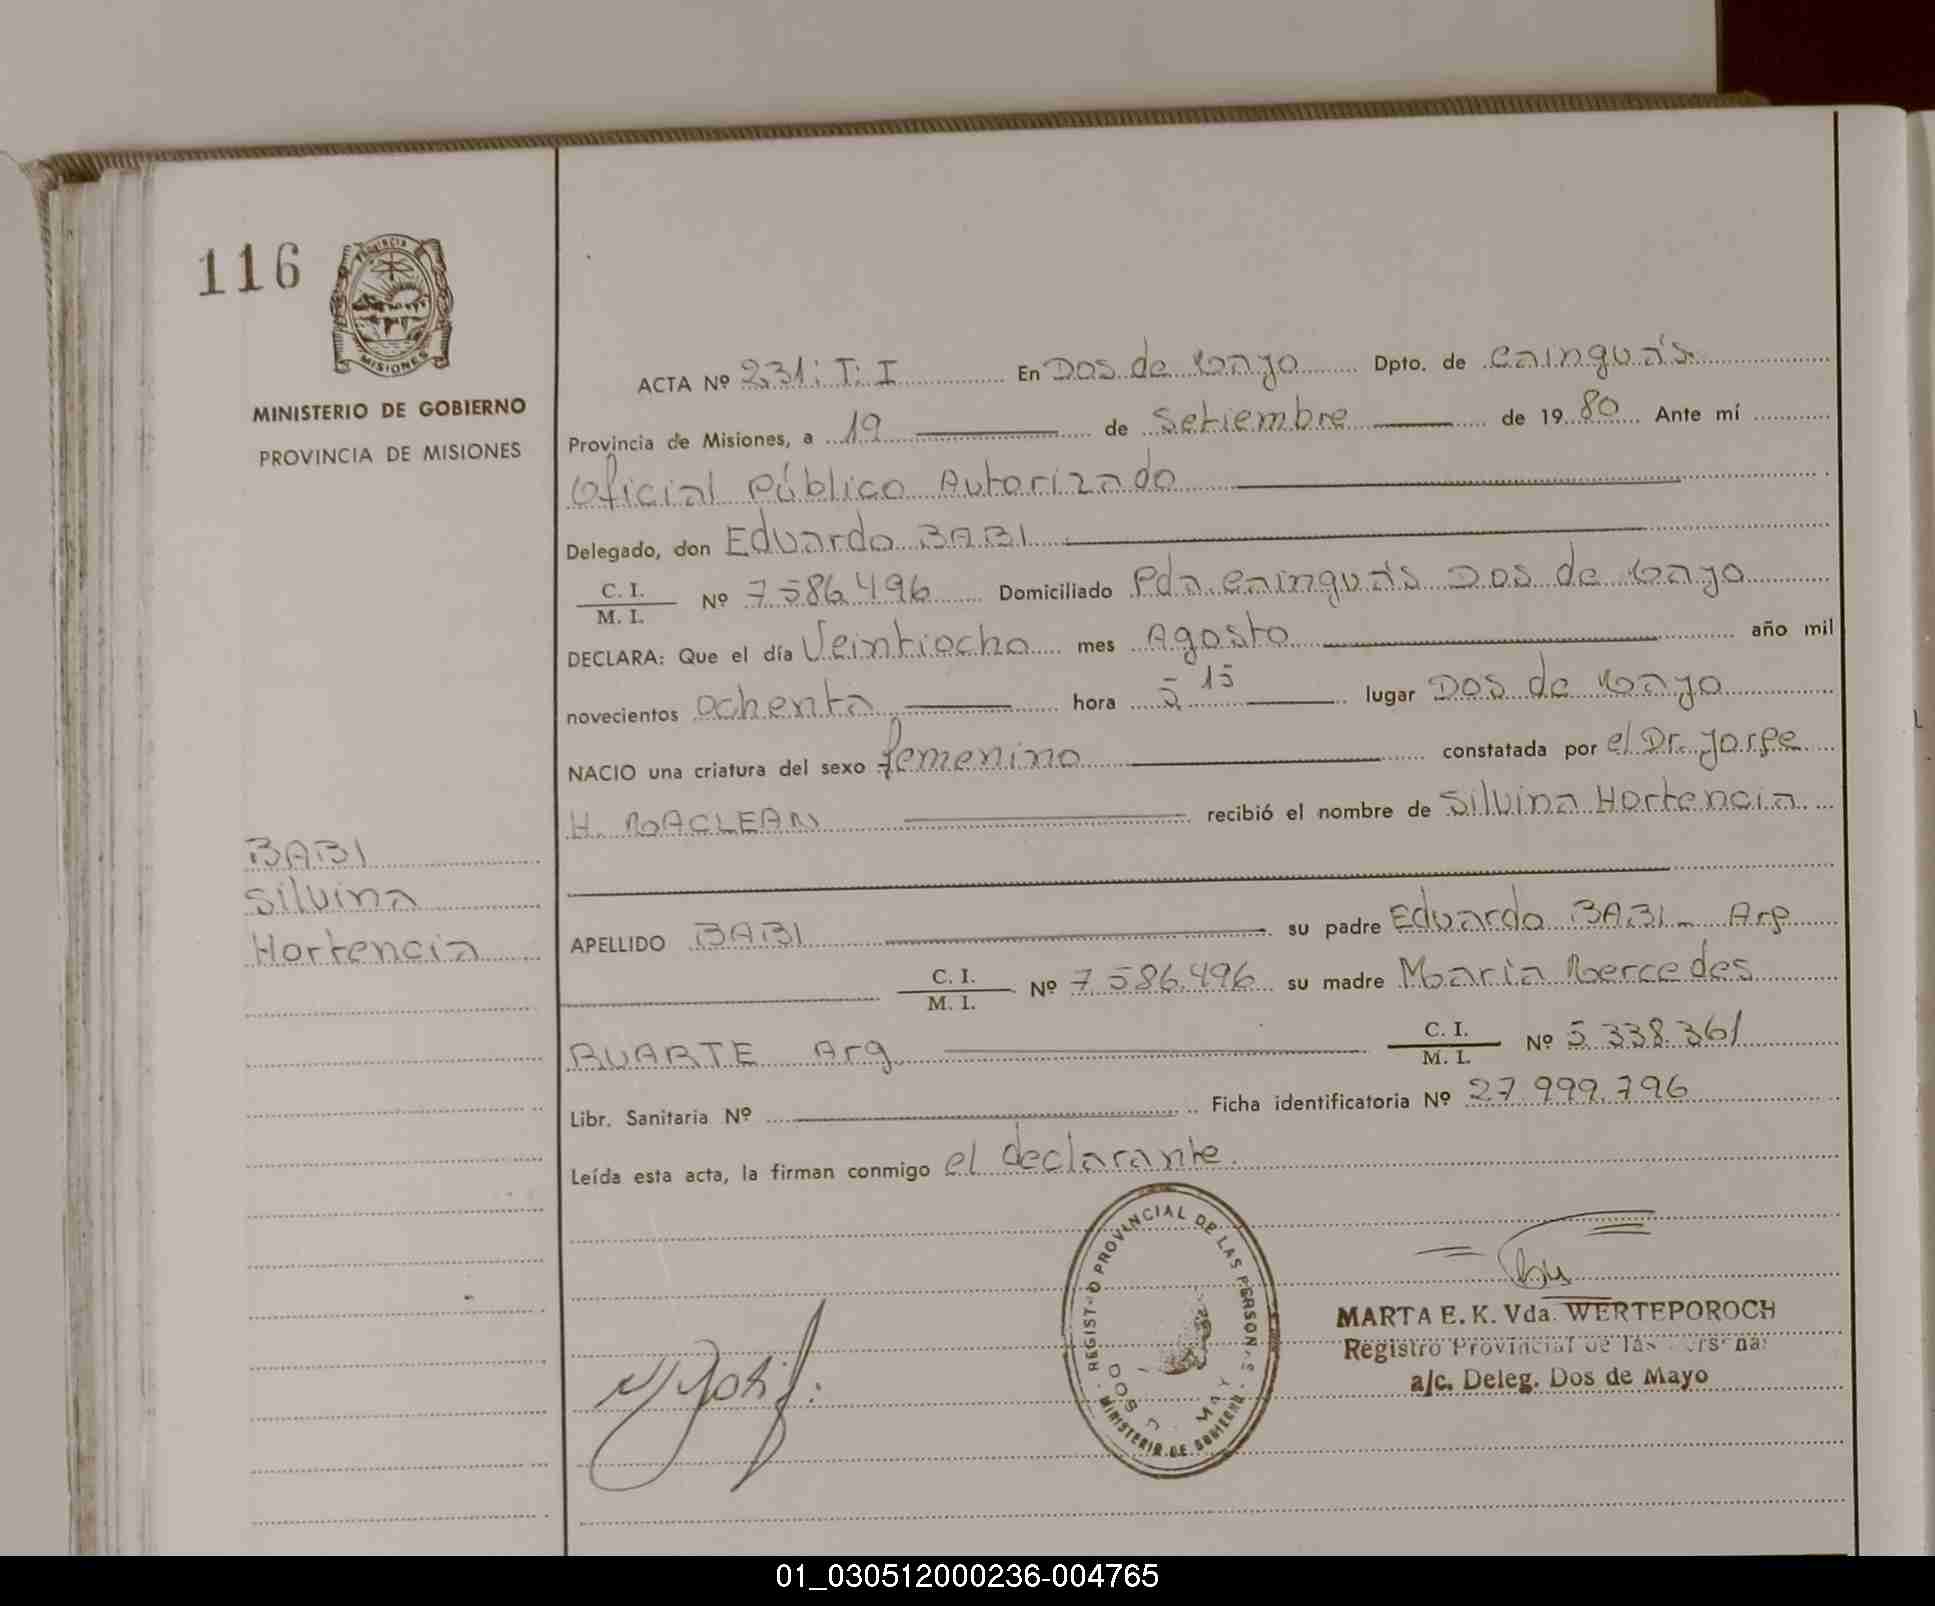 116
PROVINCIA
MISIONES
MINISTERIO DE GOBIERNO
PROVINCIA DE MISIONES
BABI
Silvina
Hortencia
ACTA Nº 231: T: I En Dos de Mayo Dpto. de Cainguás
Provincia de Misiones, a 19 de Setiembre de 1980 Ante mí
Oficial Público Autorizado
Delegado, don Eduardo BABI
C. I.
M. I.
Nº 7 586 496 Domiciliado Pda. Cainguás Dos de Mayo
DECLARA: Que el día Veintiocho mes Agosto año mil
novecientos Ochenta hora 5 15 lugar Dos de Mayo
NACIO una criatura del sexo femenino constatada por el Dr. Jorge
H. MACLEAN recibió el nombre de Silvina Hortencia
APELLIDO BABI su padre Eduardo BABI - Arg
C. I.
M. I.
Nº 7 586.496 su madre Maria Mercedes
Arg
C. I.
M. I.
Nº 5 338.361
Libr. Sanitaria Nº Ficha identificatoria Nº 27.999.796
Leída esta acta, la firman conmigo el declarante.
REGISTRO PROVINCIAL DE LAS PERSONAS
MINISTERIO DE GOBIERNO
MARTA E. K. Vda. WERTEPOROCH
Registro Provincial de las Personas
a/c. Deleg. Dos de Mayo
01_030512000236-004765